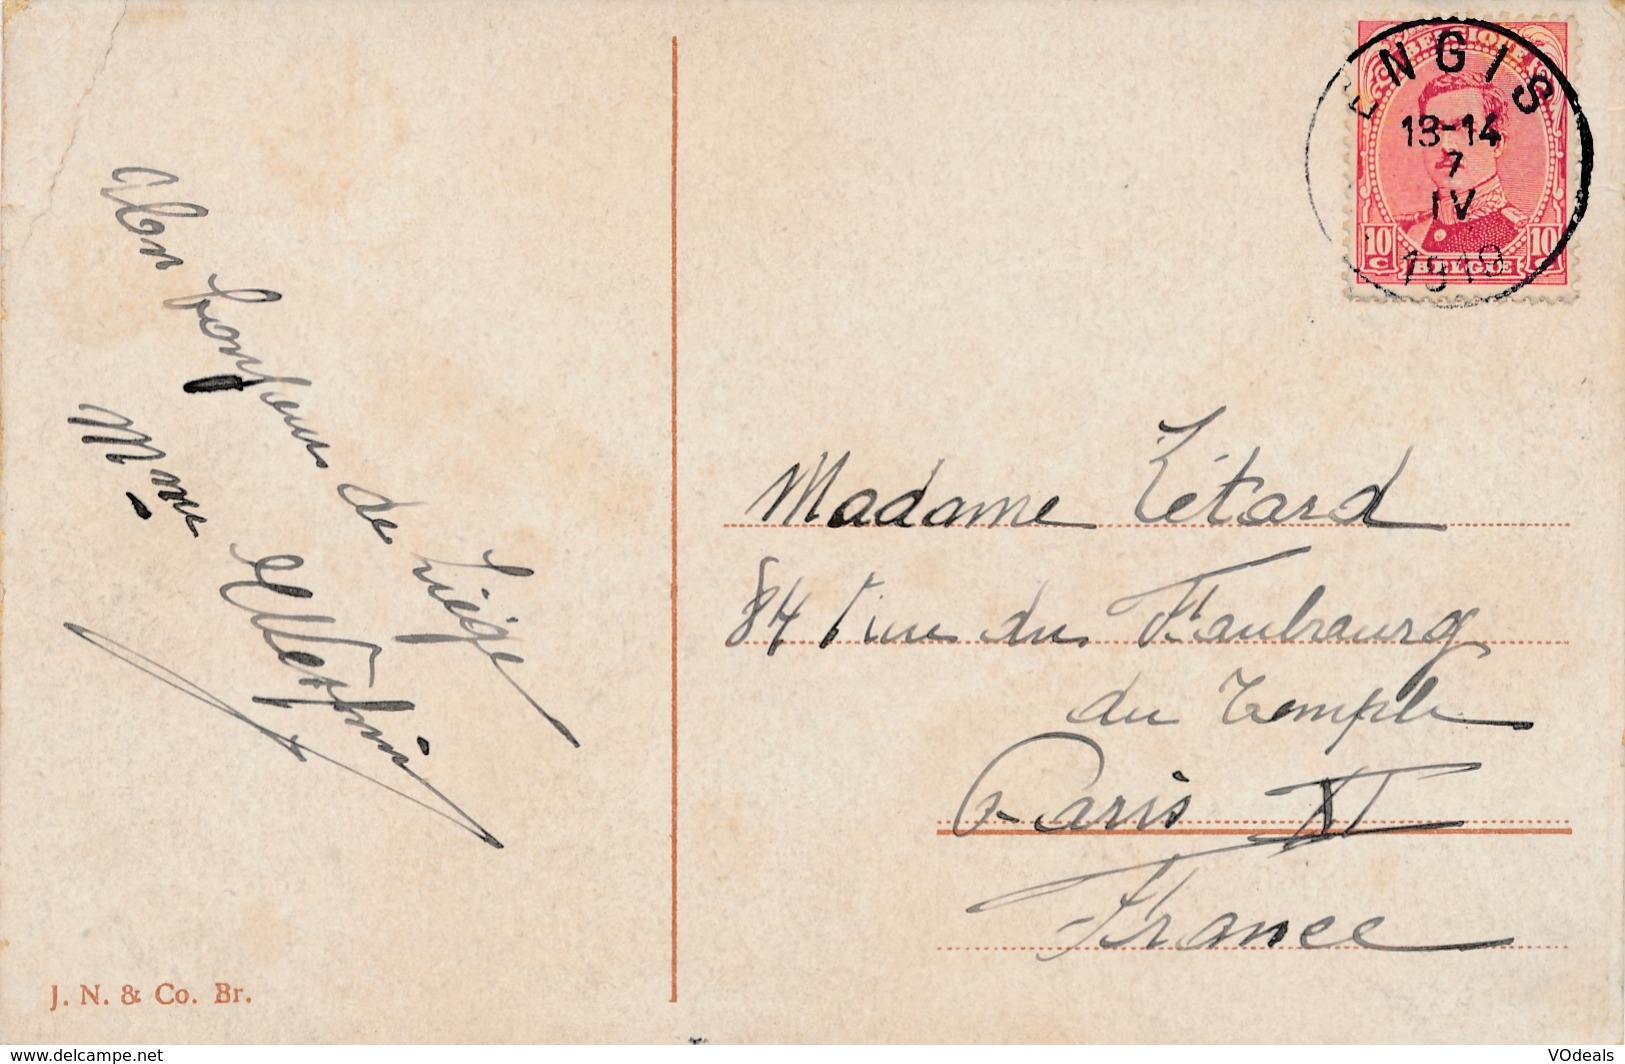 Un bonjour de Liège
Mme
BELGIQUE
ENGIS
13-14
7
IV
1919
10 c
BELGIE
10 c
Madame Létard
84 rue du Faubourg
du Temple
Paris XI
France
J. N. & Co. Br.
www.delcampe.net
VOdeals